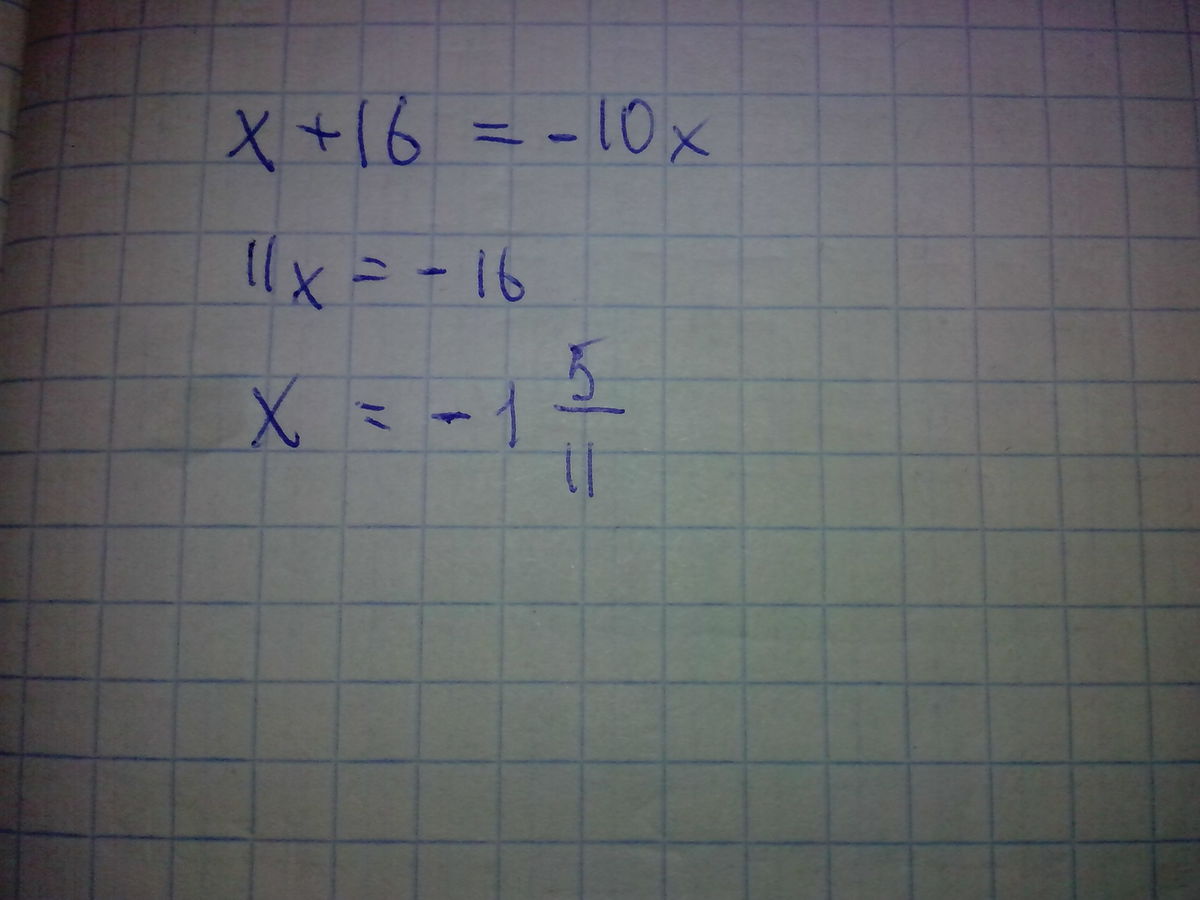 x + 16 = -10x
11x = -16
x = -1 5/11